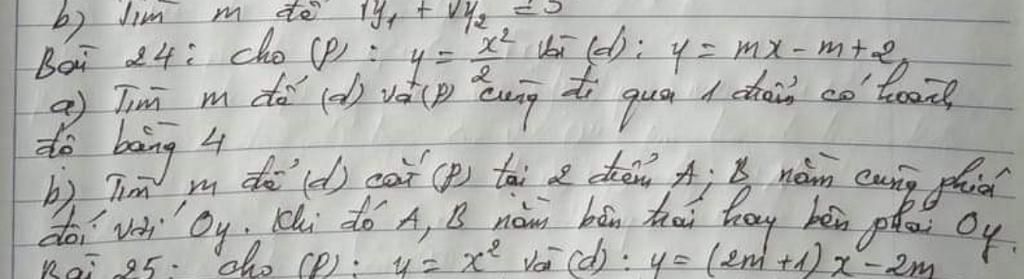 b) Tìm m để √y₁ + √y₂ = 5
Bài 24: cho (P): y = x²/2 và (d): y = mx - m + 2
a) Tìm m để (d) và (P) cùng đi qua 1 điểm có hoành
độ bằng 4
b) Tìm m để (d) cắt (P) tại 2 điểm A; B nằm cùng phía
đối với Oy. Khi đó A, B nằm bên trái hay bên phải Oy.
Bài 25: cho (P): y = x² và (d): y = (2m+1)x - 2m